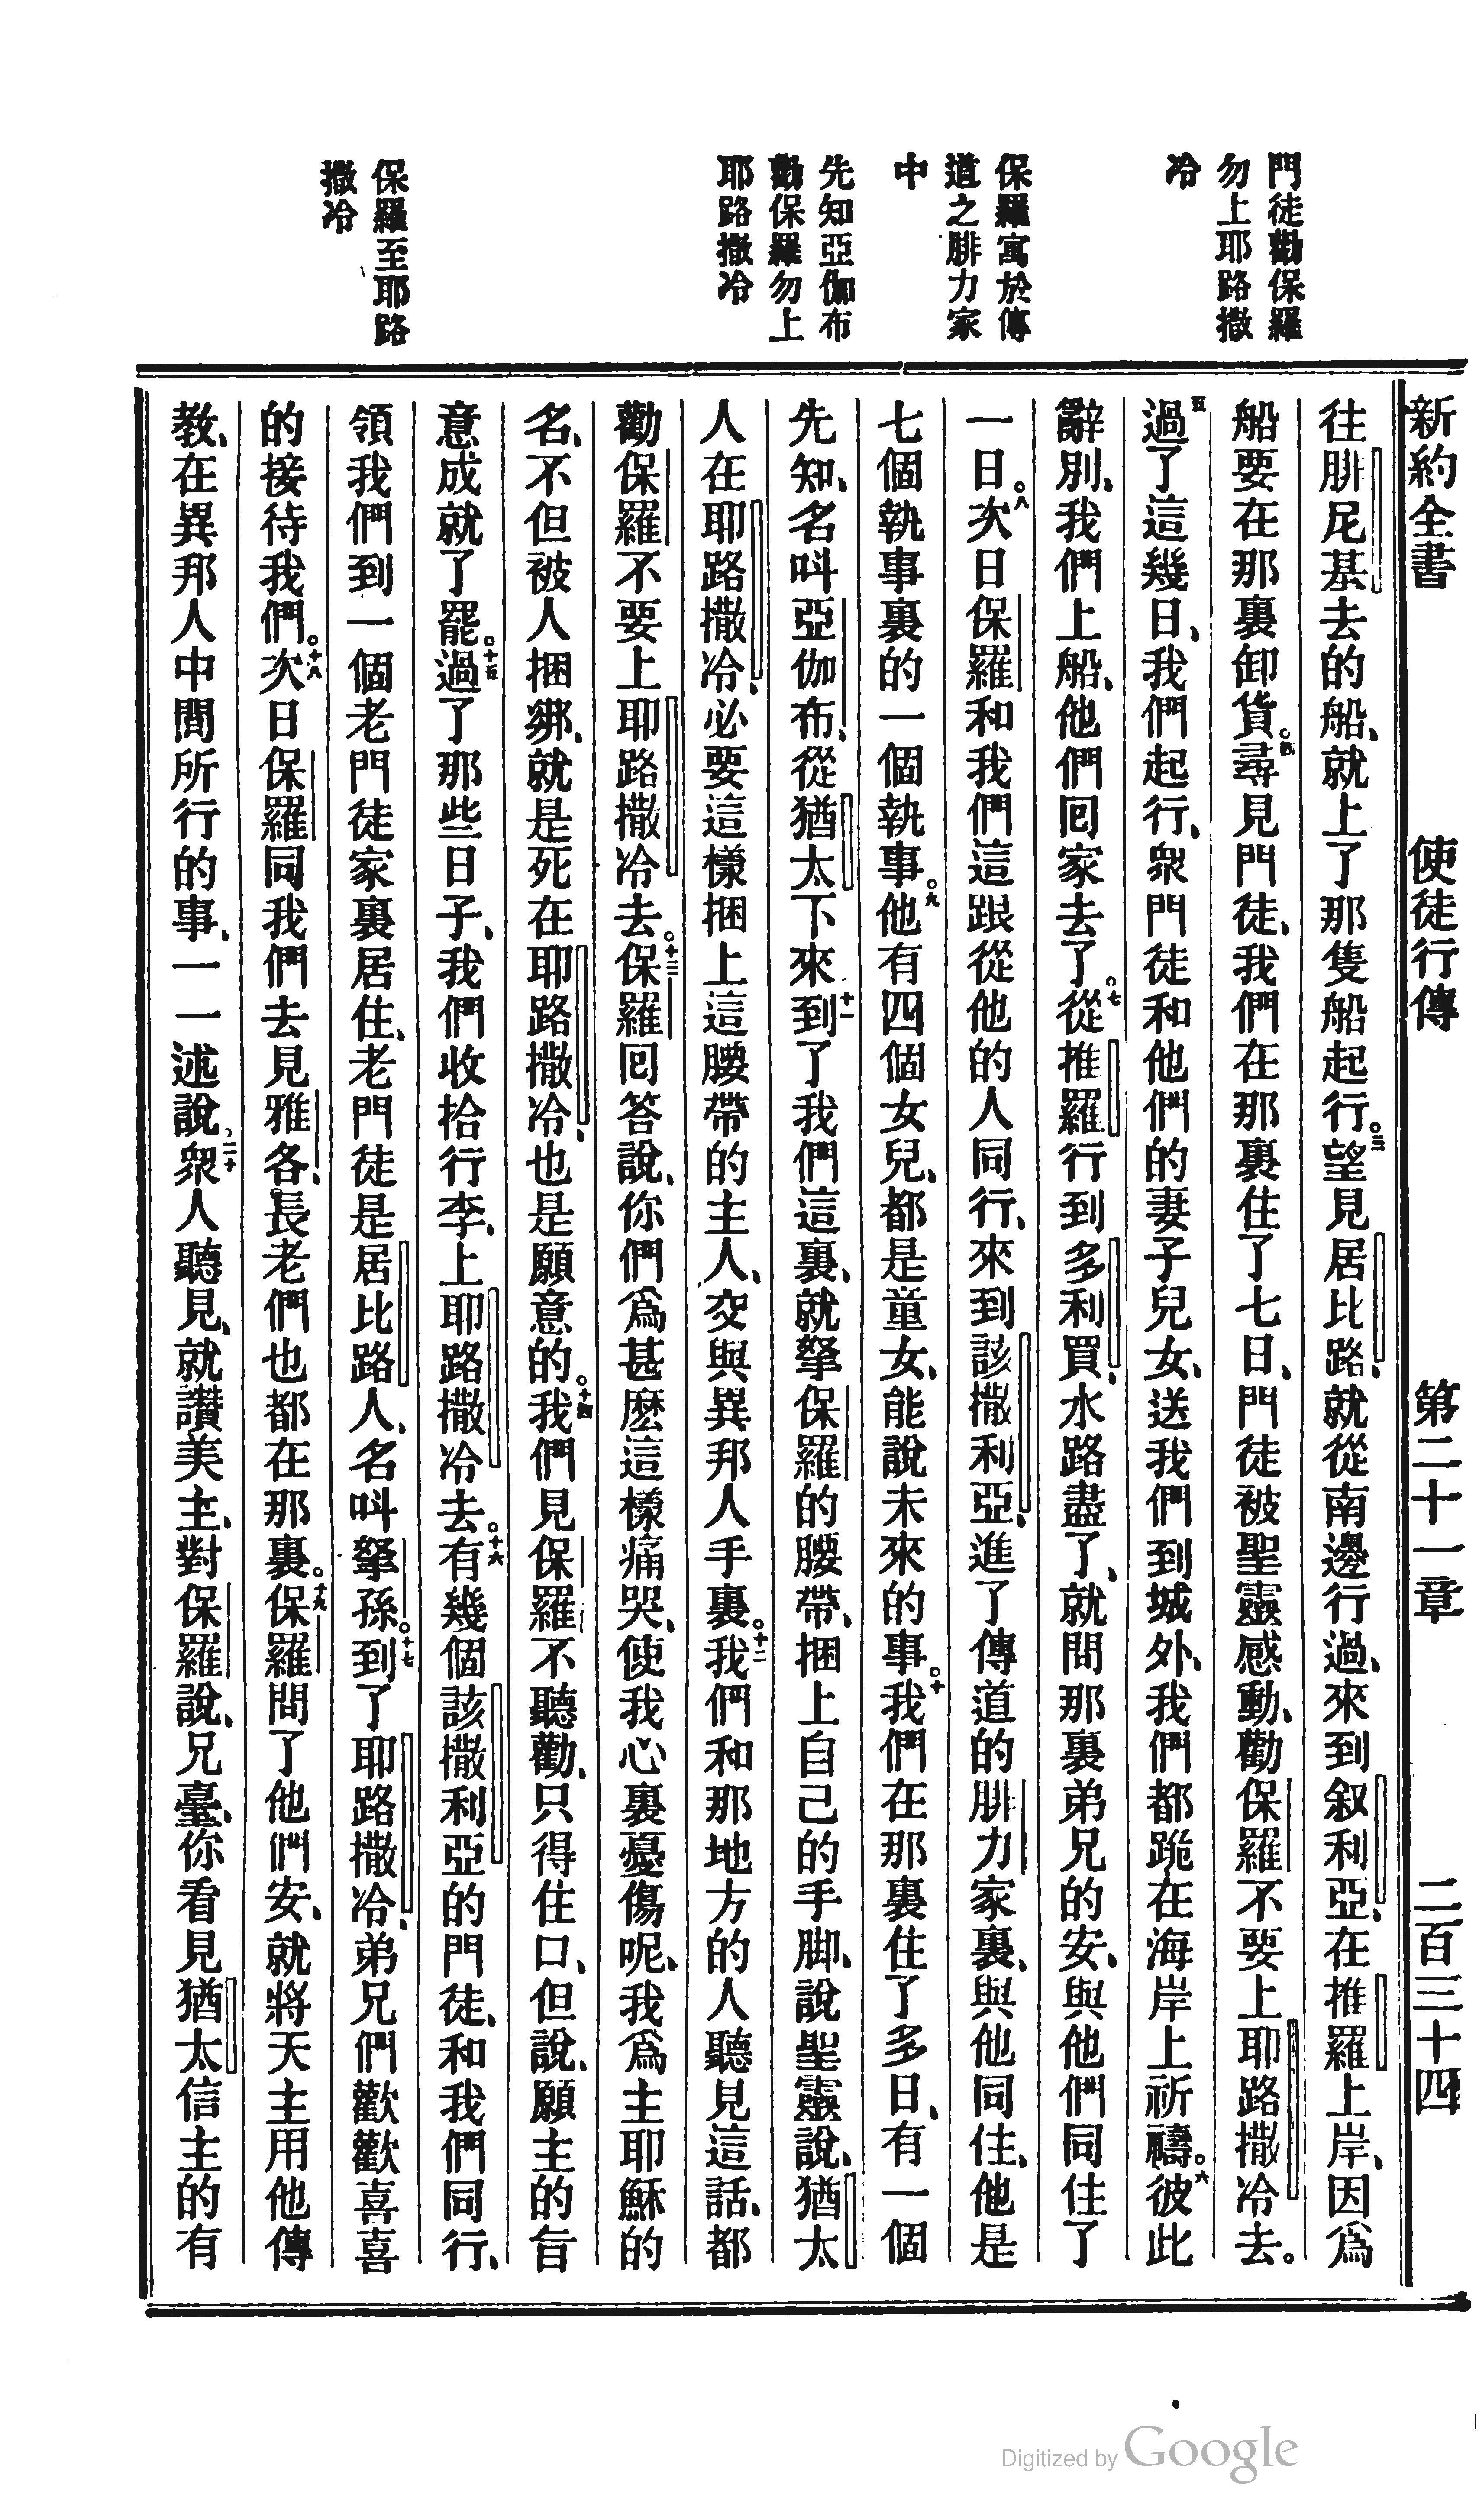 新約全書 使徒行傳 第二十一章 二百三十四
門徒勸保羅
勿上耶路撒
冷
保羅寓於傳
道之腓力家
中
先知亞伽布
勸保羅勿上
耶路撒冷
保羅至耶路
撒冷
往腓尼基去的船、就上了那隻船起行。三望見居比路、就從南邊行過、來到叙利亞、在推羅上岸、因爲
船要在那裏卸貨。四尋見門徒、我們在那裏住了七日、門徒被聖靈感動、勸保羅不要上耶路撒冷去。
五過了這幾日、我們起行、衆門徒和他們的妻子兒女、送我們到城外、我們都跪在海岸上祈禱。六彼此
辭別、我們上船、他們回家去了。七從推羅行到多利買、水路盡了、就問那裏弟兄的安、與他們同住了
一日。八次日保羅和我們這跟從他的人同行、來到該撒利亞、進了傳道的腓力家裏、與他同住、他是
七個執事裏的一個執事。九他有四個女兒、都是童女、能說未來的事。十我們在那裏住了多日、有一個
先知、名呌亞伽布、從猶太下來十一到了我們這裏、就拏保羅的腰帶、捆上自己的手脚、說聖靈說、猶太
人在耶路撒冷、必要這樣捆上這腰帶的主人、交與異邦人手裏。十二我們和那地方的人聽見這話、都
勸保羅不要上耶路撒冷去。十三保羅回答說、你們爲甚麽這樣痛哭、使我心裏憂傷呢、我爲主耶穌的
名、不但被人捆綁、就是死在耶路撒冷、也是願意的。十四我們見保羅不聽勸、只得住口、但說、願主的旨
意成就了罷。十五過了那些日子、我們收拾行李、上耶路撒冷去。十六有幾個該撒利亞的門徒、和我們同行、
領我們到一個老門徒家裏居住、老門徒是居比路人、名呌拏孫。十七到了耶路撒冷、弟兄們歡歡喜喜
的接待我們。十八次日保羅同我們去見雅各、長老們也都在那裏。十九保羅問了他們安、就將天主用他傳
教、在異邦人中間所行的事、一一述說、二十衆人聽見、就讚美主、對保羅說、兄臺、你看見猶太信主的有
Digitized by Google